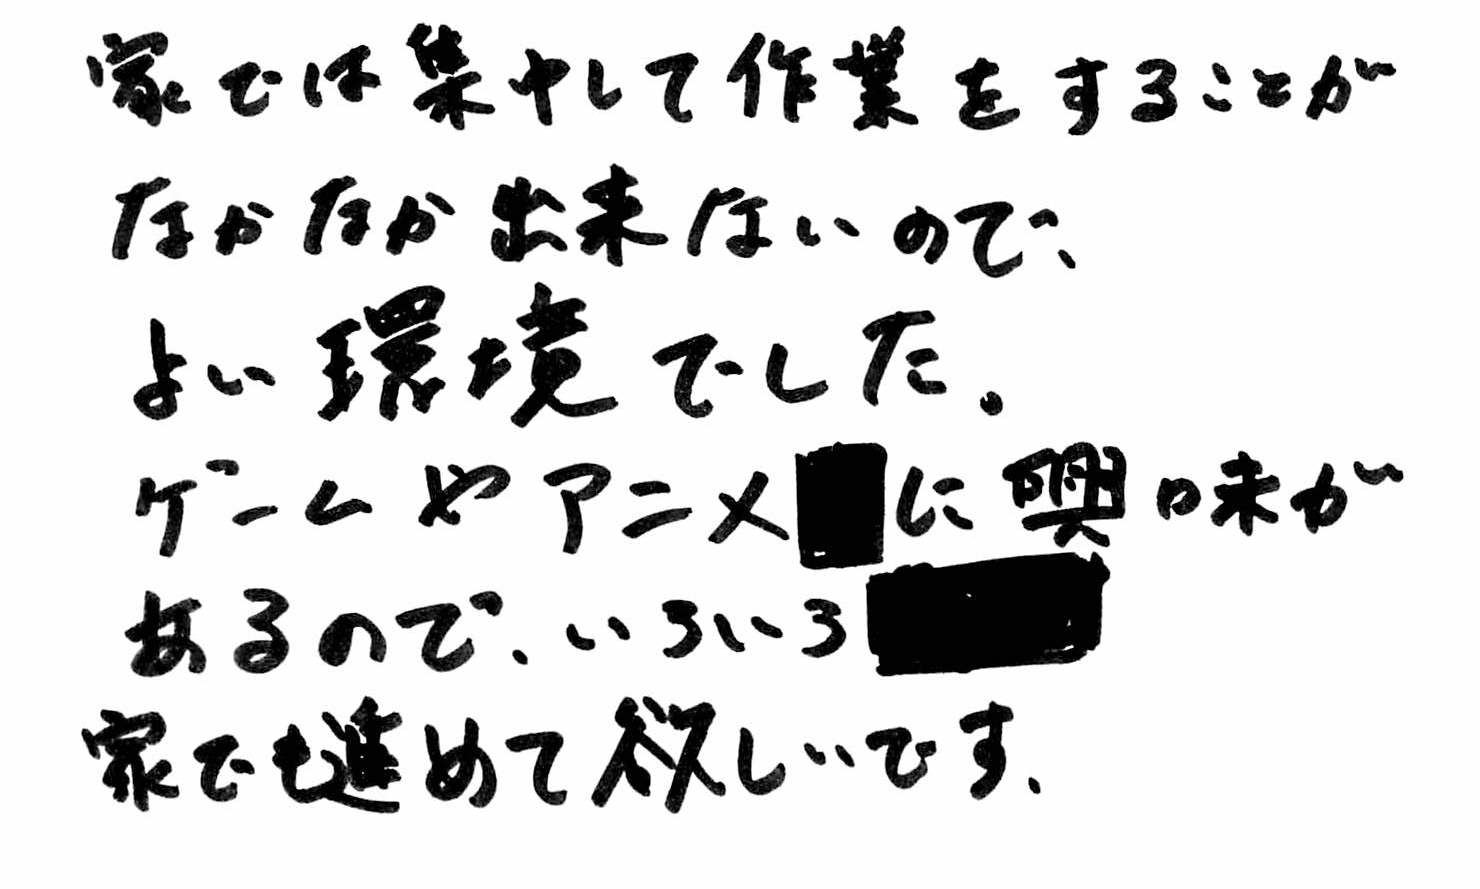 家では集中して作業をすることが
なかなか出来ないので、
よい環境でした。
ゲームやアニメに興味が
あるので、いろいろ
家でも進めて欲しいです、